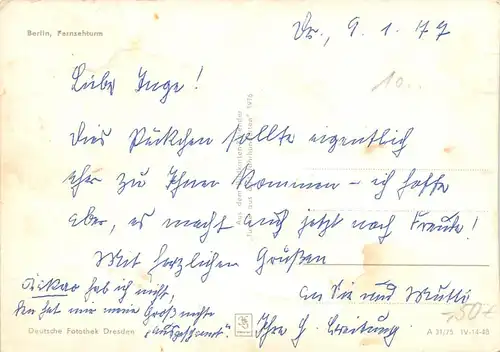 Berlin, Fernsehturm
Dr., 9. 1. 77
10..
Liebe Inge!
Dies Päckchen sollte eigentlich
eher zu Ihnen kommen – ich hoffe
aber, es macht auch jetzt noch Freude!
Mit herzlichen Grüßen
an Sie und Mutti
Ihre
hab ich nicht,
den hat mir meine Großnichte
Deutsche Fotothek Dresden
A 31/75 IV-14-48
-,50